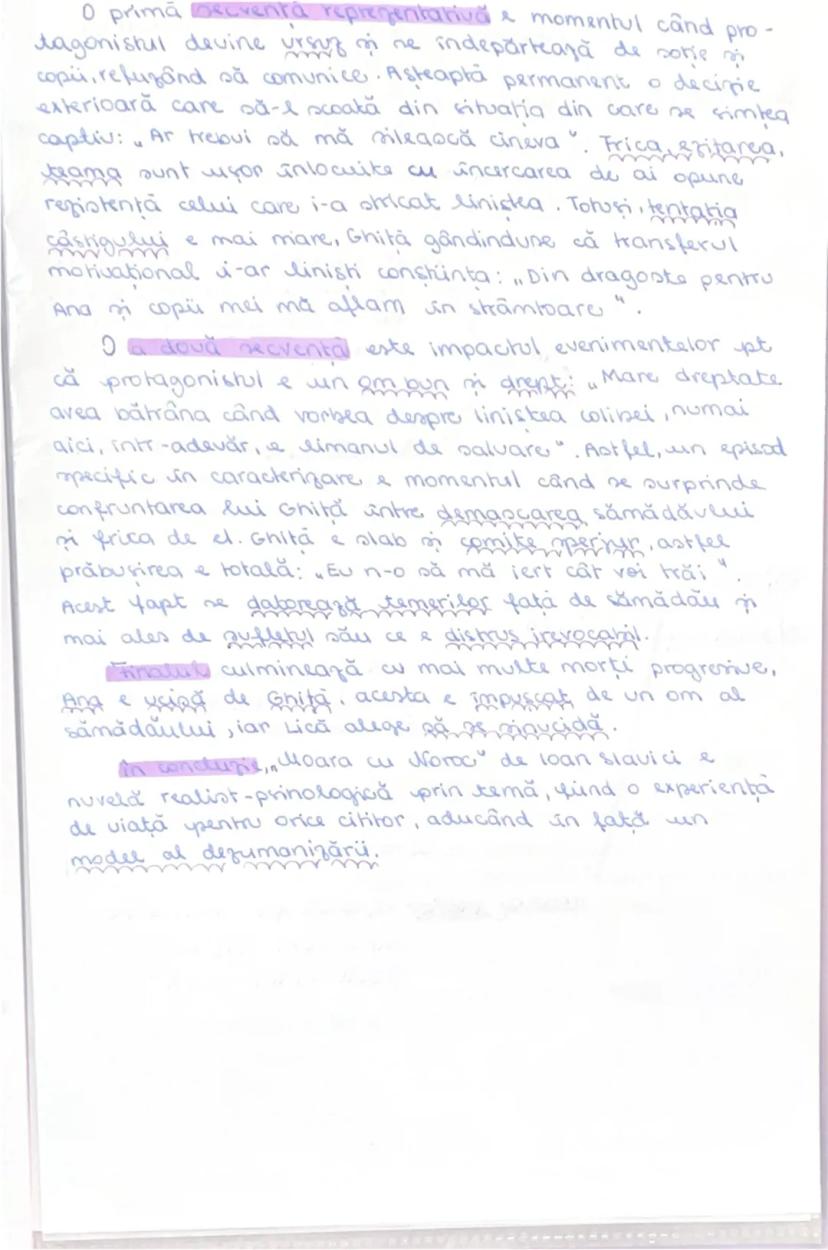 O primă secvență reprezentativă e momentul când pro-
tagonistul devine ursuz și se îndepărtează de soție și
copii, refuzând să comunice. Așteaptă permanent o decizie
exterioară care să-l scoată din situația din care se simțea
captiv: „Ar trebui să mă silească cineva". Frica, ezitarea,
teama sunt ușor înlocuite cu încercarea de ai opune
rezistență celui care i-a stricat liniștea. Totuși, tentația
câștigului e mai mare, Ghiță gândindune că transferul
motivațional i-ar liniști conștiința: „Din dragoste pentru
Ana și copii mei mă aflam în strâmtoare".
O a două secvență este impactul evenimentelor pt
că protagonistul e un om bun și drept: „Mare dreptate
avea bătrâna când vorbea despre liniștea colibei, numai
aici, într-adevăr, e limanul de salvare". Astfel, un episod
specific în caracterizare e momentul când se surprinde
confruntarea lui Ghiță între demascarea sămădăului
și frica de el. Ghiță e slab și comite sperjur, astfel
prăbușirea e totală: „Eu n-o să mă iert cât voi trăi".
Acest fapt se datorează temerilor față de sămădău și
mai ales de sufletul său ce e distrus irevocabil.
Finalul culminează cu mai multe morți progresive,
Ana e ucisă de Ghiță, acesta e împușcat de un om al
sămădăului, iar Lică alege să se sinucidă.
În concluzie, „Moara cu Noroc" de Ioan Slavici e
nuvelă realist-psihologică prin temă, fiind o experiență
de viață pentru orice cititor, aducând în față un
model al dezumanizării.